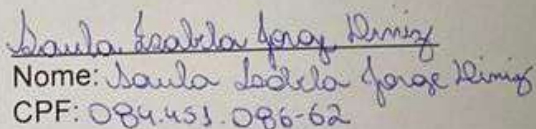 Saula Isabela Jorge Diniz
Nome: Saula Isabela Jorge Diniz
CPF: 084.451.086-62